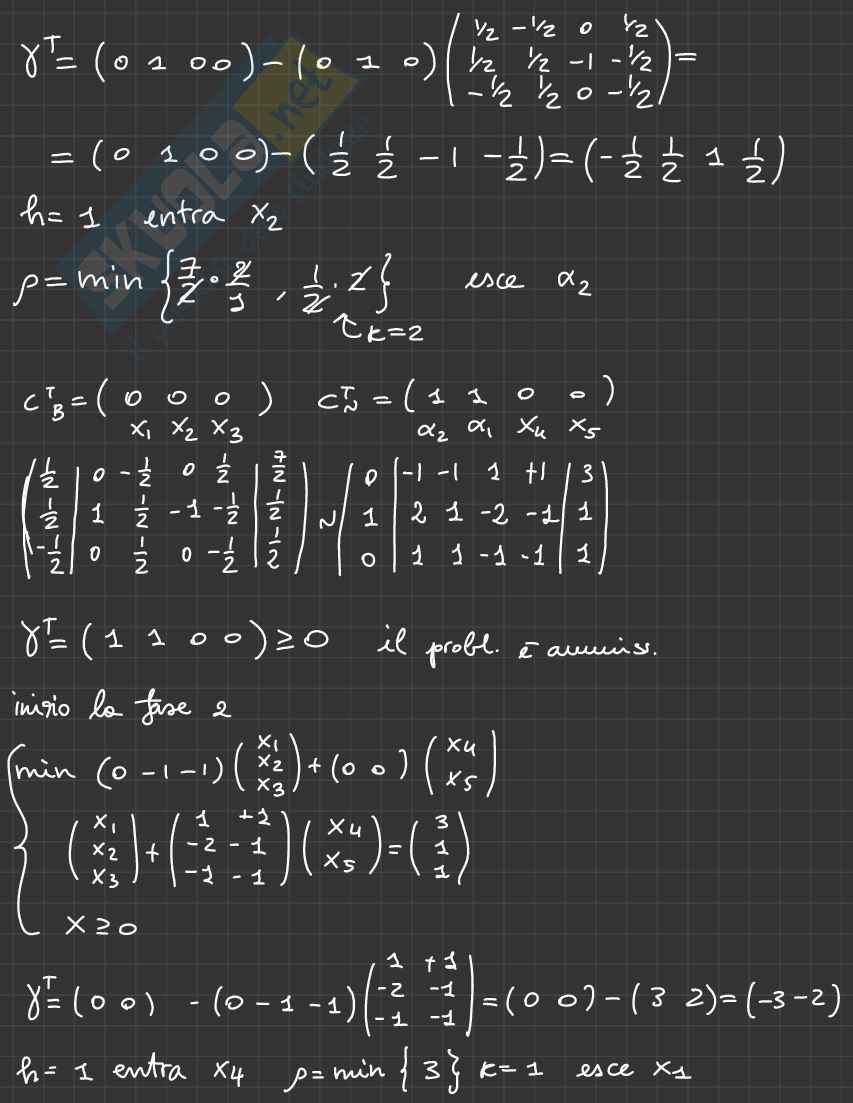 γᵀ = (0 1 0 0) − (0 1 0) (½ −½ 0 ½
½ ½ −1 −½
−½ ½ 0 −½) =
= (0 1 0 0) − (½ ½ −1 −½) = (−½ ½ 1 ½)
h = 1 entra x₂
ρ = min {7/2 · 2/1 , 1/2 · 2} esce α₂
↑ k=2
cᵀ_B = (0 0 0) cᵀ_N = (1 1 0 0)
x₁ x₂ x₃ α₂ α₁ x₄ x₅
(½ | 0 −½ 0 ½ | 7/2) ~ (0 | −1 −1 1 +1 | 3)
(½ | 1 ½ −1 −½ | ½) (1 | 2 1 −2 −1 | 1)
(−½ | 0 ½ 0 −½ | ½) (0 | 1 1 −1 −1 | 1)
γᵀ = (1 1 0 0) ≥ 0 il probl. è ammiss.
inizio la fase 2
min (0 −1 −1) (x₁ x₂ x₃) + (0 0) (x₄ x₅)
(x₁ + (1 +1 (x₄ = (3
x₂ −2 −1 x₅) 1
x₃) −1 −1) 1)
x ≥ 0
γᵀ = (0 0) − (0 −1 −1) (1 +1
−2 −1
−1 −1) = (0 0) − (3 2) = (−3 −2)
h = 1 entra x₄ ρ = min {3} k = 1 esce x₁
SKUOLA.net